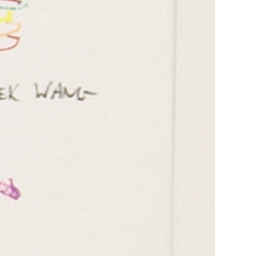 EK WANG